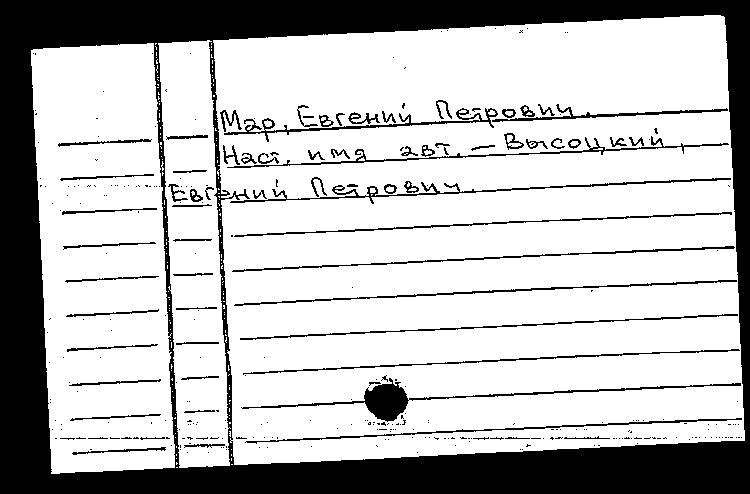 Мар, Евгений Петрович.
Наст. имя авт. — Высоцкий,
Евгений Петрович.